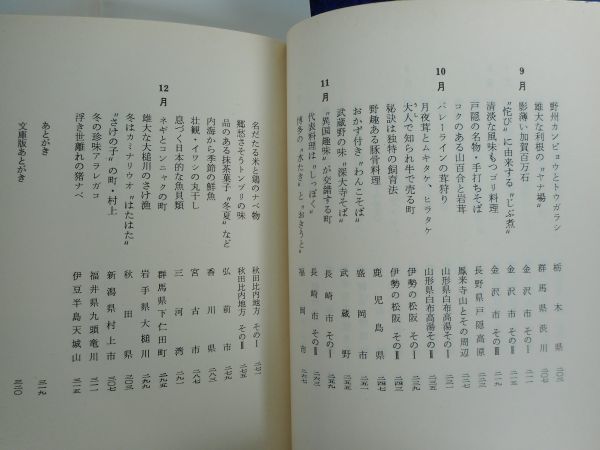 9月
野州カンピョウとトウガラシ 栃木県 二〇三
雄大な利根の“ヤナ場” 群馬県渋川 二〇七
影薄い加賀百万石 金沢市 その I 二一一
“侘び”に由来する“じぶ煮” 金沢市 その II 二一五
清淡な風味もつゴリ料理 金沢市 その III 二一九
戸隠の名物・手打ちそば 長野県戸隠高原 二二三
コクのある山百合と岩茸 鳳来寺山とその周辺 二二七
10月
バレーラインの茸狩り 山形県白布高湯その I 二三一
月夜茸とムキタケ、ヒラタケ 山形県白布高湯その II 二三五
大人で知られ牛で売る町 伊勢の松阪 その I 二三九
秘訣は独特の飼育法 伊勢の松阪 その II 二四三
野趣ある豚骨料理 鹿児島県 二四七
おかず付き“わんこそば” 盛岡市 二五一
武蔵野の味“深大寺そば” 武蔵野 二五五
11月
“異国趣味”が交錯する町 長崎市 その I 二五九
代表料理は“しっぽく” 長崎市 その II 二六三
博多の“水たき”と“おきうと” 福岡市 二六七
名だたる米と鶏のナベ物 秋田比内地方 その I 二七一
郷愁さそうトンブリの味 秋田比内地方 その II 二七五
品のある抹茶菓子“冬夏”など 弘前市 二七九
内海から季節の鮮魚 香川県 二八三
壮観・イワシの丸干し 宮古市 二八七
息づく日本的な魚貝類 三河湾 二九一
12月
ネギとコンニャクの町 群馬県下仁田町 二九五
雄大な大槌川のさけ漁 岩手県大槌川 二九九
冬はカミナリウオ“はたはた” 秋田県 三〇三
“さけの子”の町・村上 新潟県村上市 三〇七
冬の珍味アラレガコ 福井県九頭竜川 三一一
浮き世離れの猪ナベ 伊豆半島天城山 三一五
あとがき 三一九
文庫版あとがき 三二〇